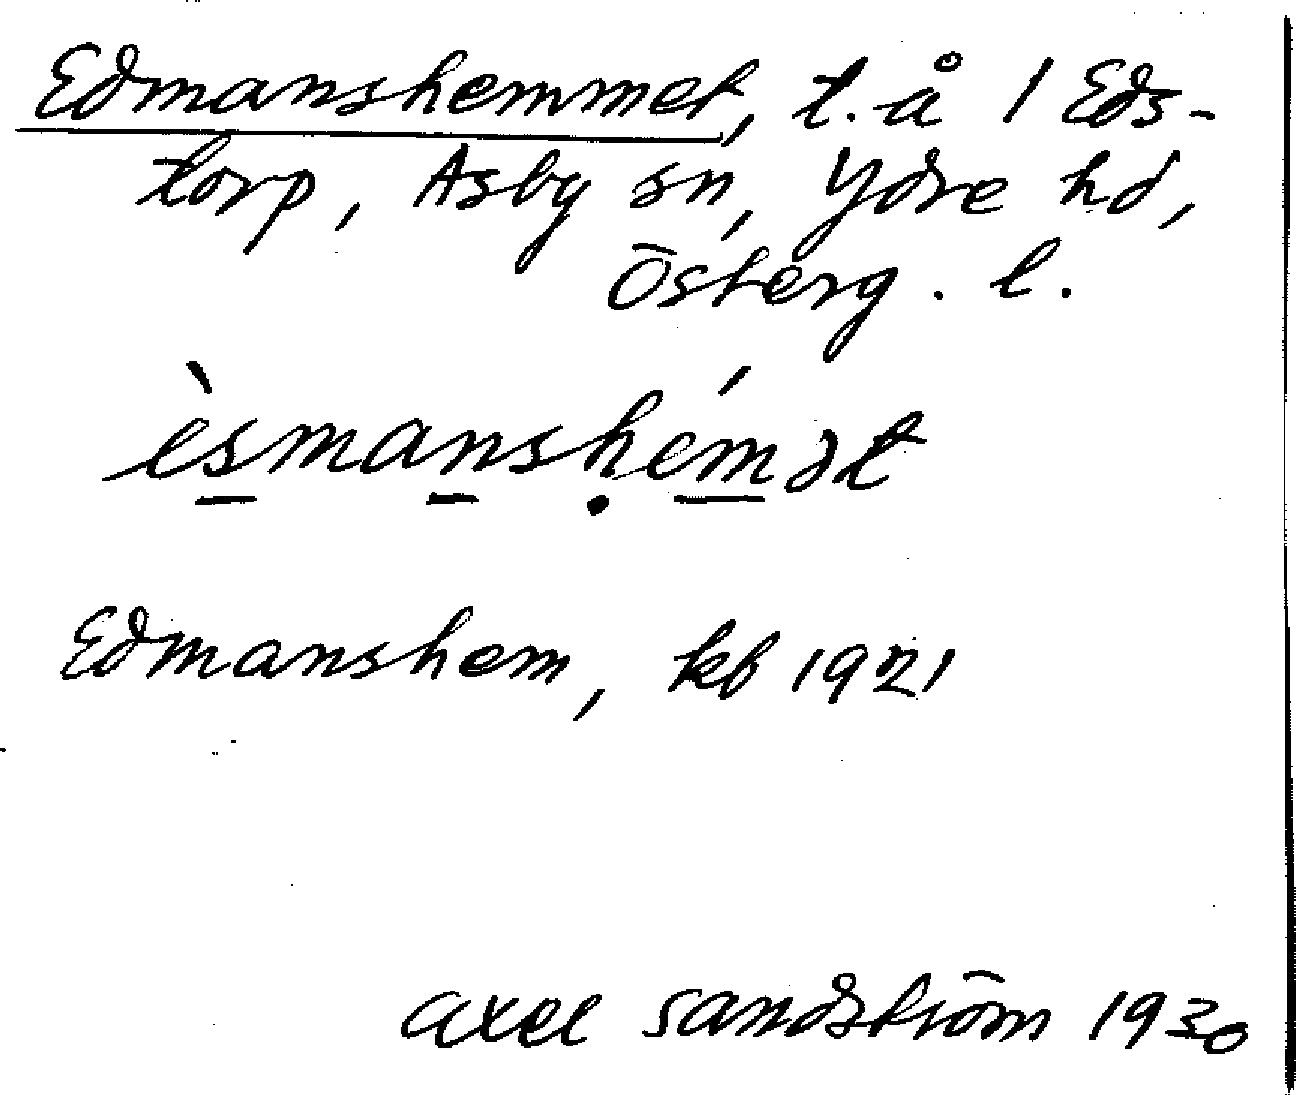 Edmanshemmet, t. å 1 Eds-
torp, Asby sn, Ydre hd,
Österg. l.
èsmanshémət
Edmanshem, kb 1921
Axel Sandström 1930